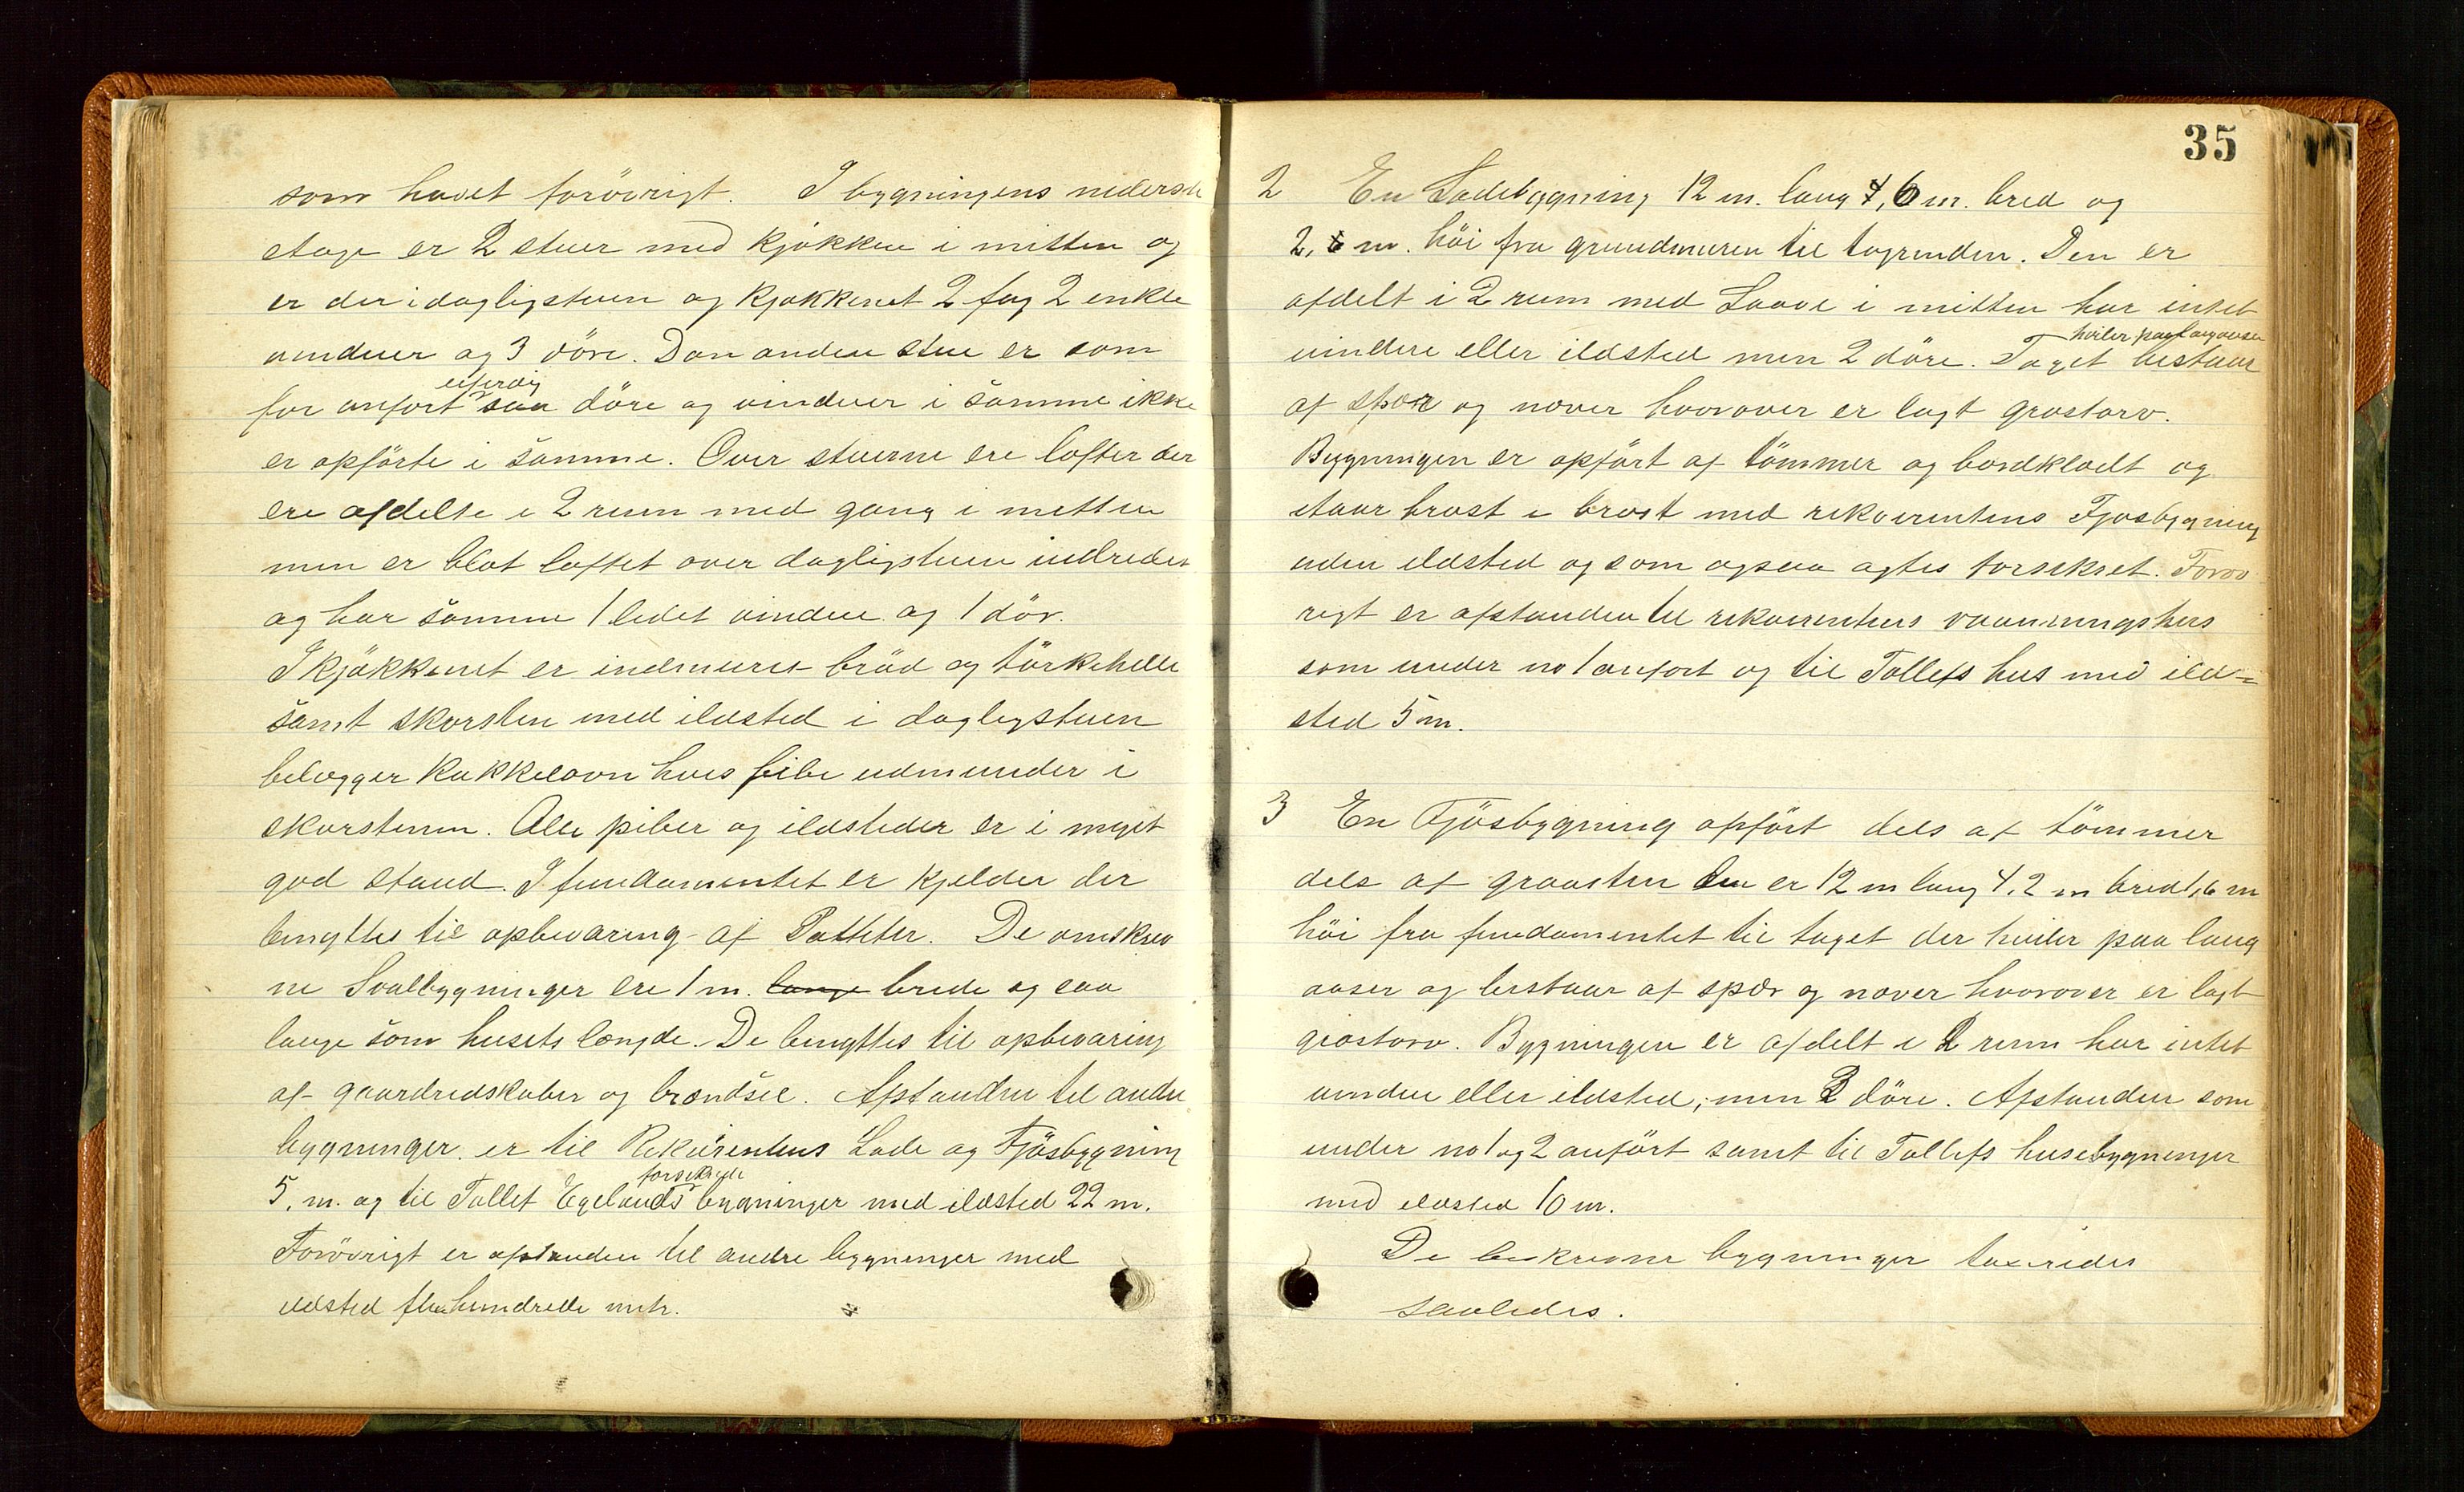 som havet forövrigt. I bygningens nederste
etage er 2 stuer med kjøkken i mitten og
er der i dagligstuen og kjøkkenet 2 fag 2 enkle
vinduer og 3 döre. Den anden stue er som
for anført uferdig saa döre og vinduer i samme ikke
er opførte i samme. Over stuerne ere lofter der
ere afdelte i 2 rum med gang i mitten
men er blot loftet over dagligstuen indredet
og har samme 1 ledet vindue og 1 dör.
I kjøkkenet er indmuret bröd og törkehelle
samt skorsten med ildsted i dagligstuen
belægger kakkelovn hvis pibe udmunder i
skorstenen. Alle piber og ildsteder er i meget
god stand. I fundamentet er kjelder der
benyttes til opbevaring af Potteter. De omskrev
ne Svalbygninger ere 1 m. lange brede og saa
lange som husets længde. De benyttes til opbevaring
af gaardredskaber og brændsel. Afstanden til andre
bygninger er til Rekvirentens Lade og Fjösbygning
5. m. og til Tollef Egelands forsikrede bygninger med ildsted 22 m.
Forövrigt er afstanden til andre bygninger med
ildsted flere hundrede mtr.
35
2 En Ladebygning 12 m. lang 4,6 m. bred og
2,6 m. höi fra grundmuren til tagrenden. Den er
afdelt i 2 rum med Laave i mitten har intet
vindue eller ildsted men 2 döre. Taget hviler paa langaaser bestaar
af spær og næver hvorover er lagt græstorv.
Bygningen er opført af tömmer og bordklædt og
staar brast i brast med rekvirentens Fjøsbygning
uden ildsted og som ogsaa agtes forsikret. Forøv
rigt er afstanden til rekvirentens vaaningshus
som under no 1 anført og til Tollefs hus med ild=
sted 5 m.
3 En Fjösbygning opfört dels af tömmer
dels af graasten den er 12 m lang 4,2 m bred 1,6 m
höi fra fundamentet til taget der hviler paa lang
aaser og bestaar af spær og næver hvorover er lagt
græstorv. Bygningen er afdelt i 2 rum har intet
vindue eller ildsted, men 2 döre. Afstanden som
under no 1 og 2 anfört samt til Tollefs husebygninger
med ildsted 10 m.
De beskrevne bygninger taxeredes
saaledes.